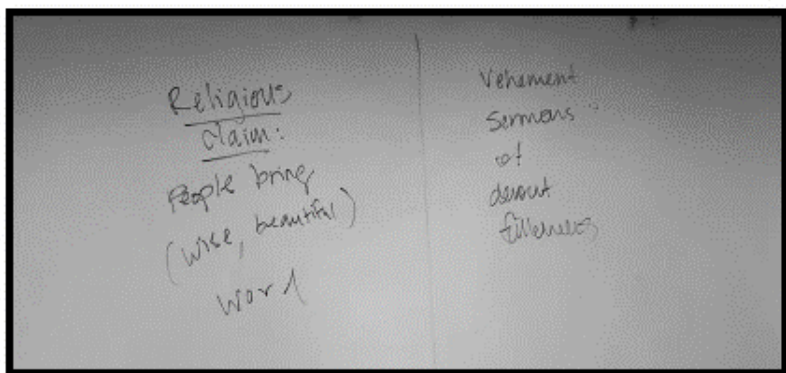 Religious
Claim:
People bring
(wise, beautiful)
word
Vehement
Sermons
of
devout